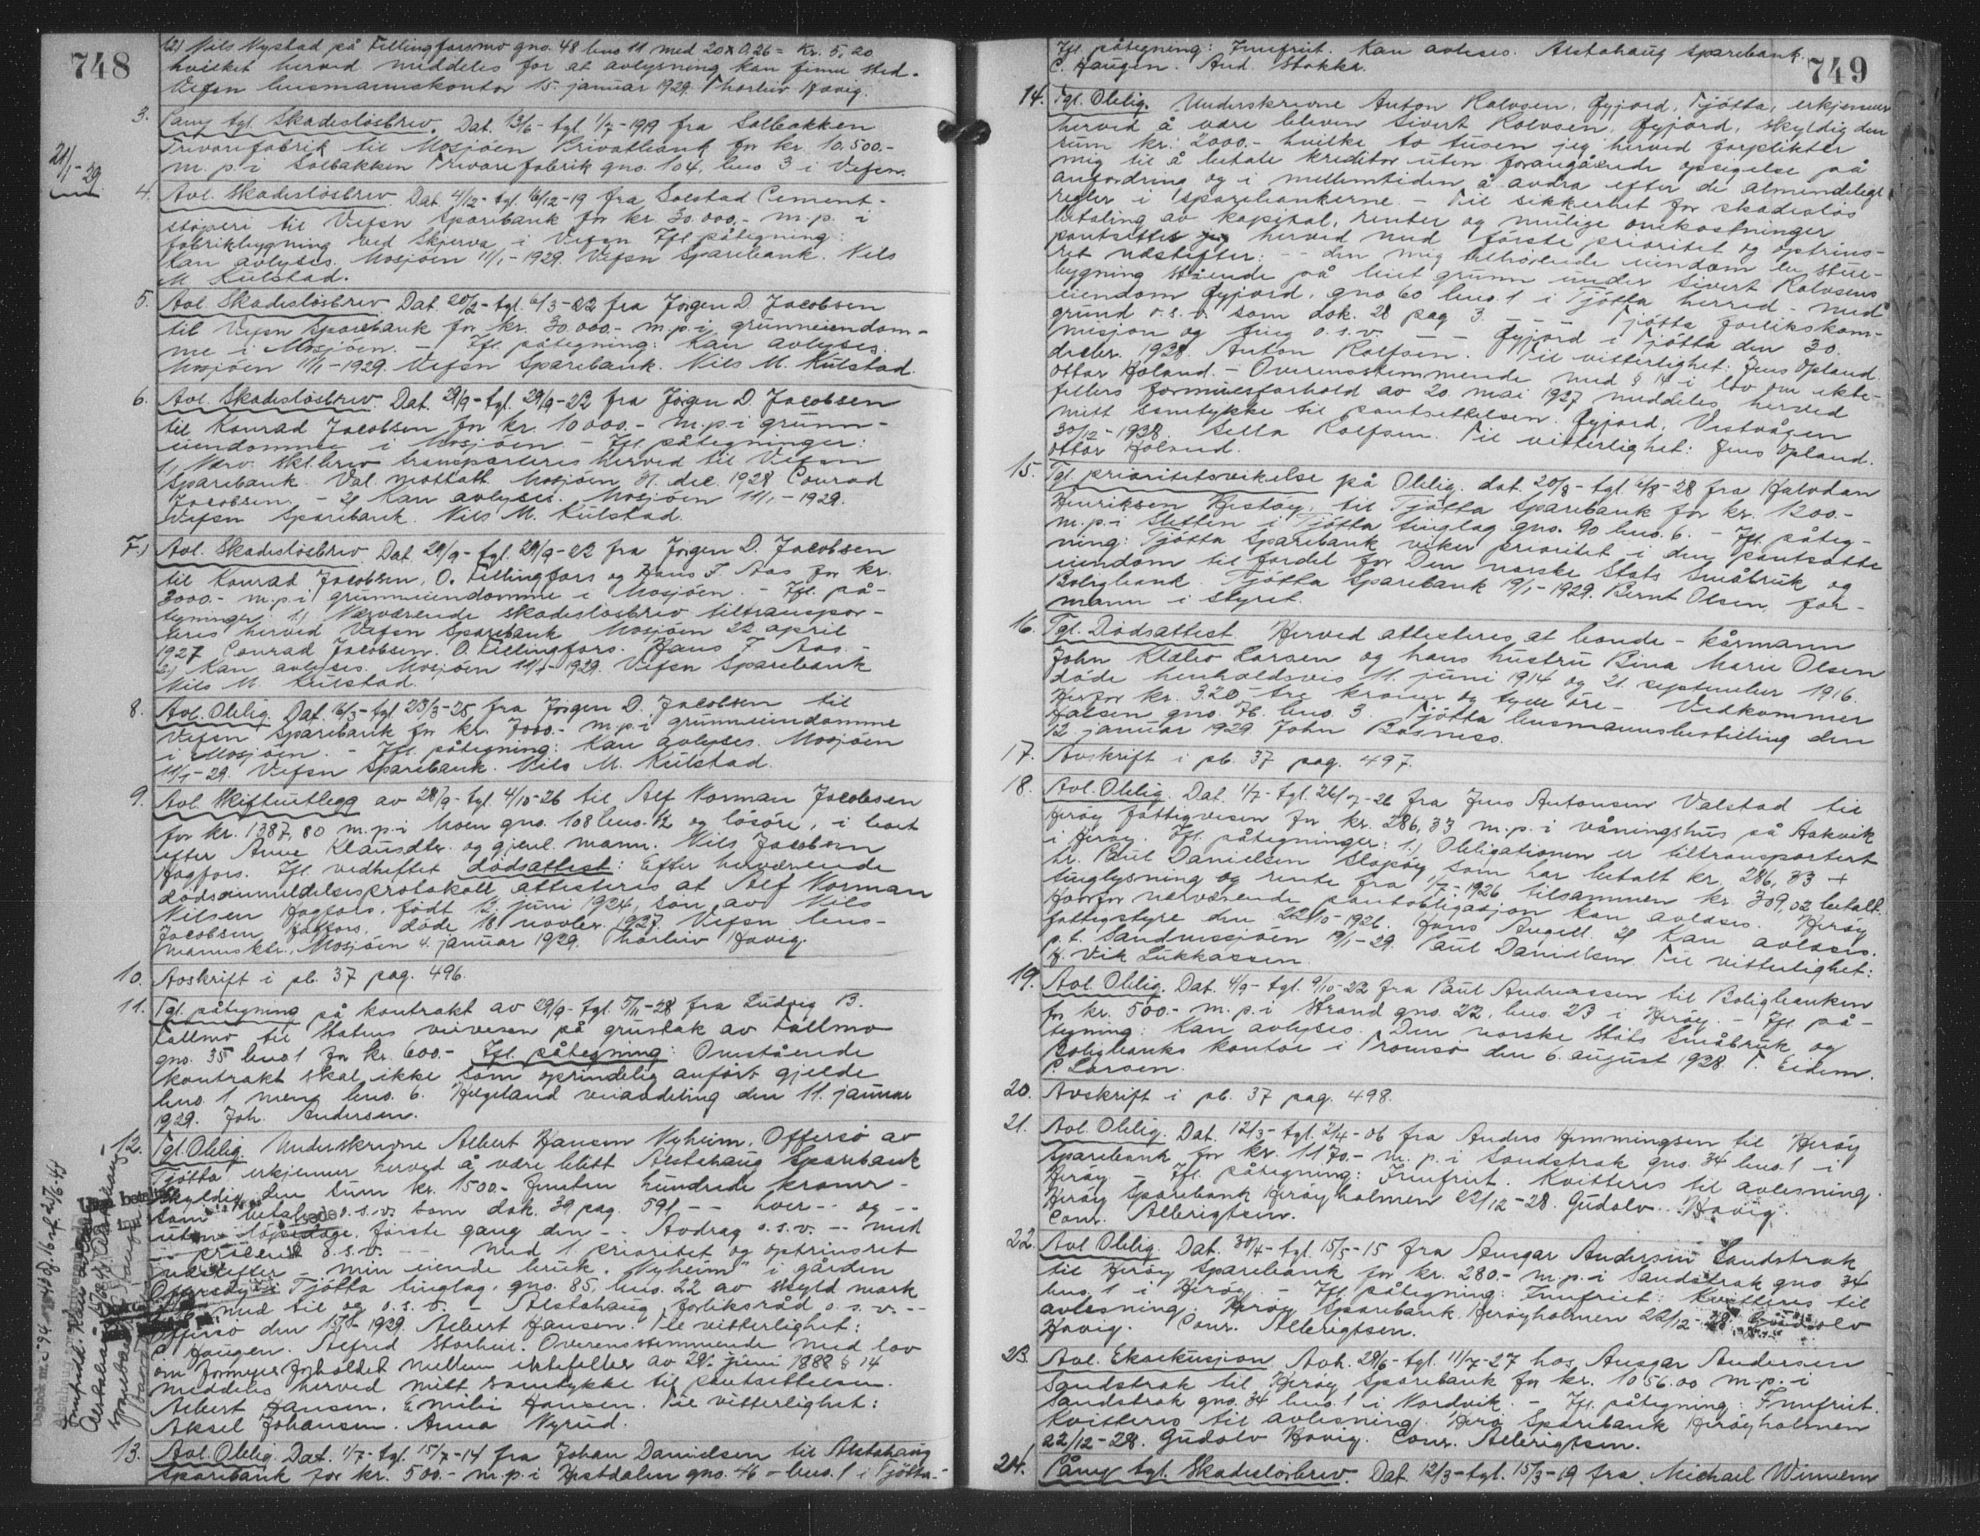 748
(2) Nils Nystad på Fellingforsmo gno. 48 bno 11 med 20 x 0,26 = Kr. 5,20
hvilket herved meddeles for at avlysning kan finne sted.
Vefsn lensmannskontor 15. januar 1929. Thorleiv Hovig.
21/1-29
3. Pany tgl. Skadesløsbrev. Dat. 13/6 - tgl. 1/7-1919 fra Solbakken
Trevarefabrik til Mosjøen Privatbank for kr. 10.500.-
m.p.i Solbakken Trevarefabrik gno. 104, bno. 3 i Vefsn.
4. Avl. Skadesløsbrev. Dat. 4/12 - tgl. 16/12-19 fra Solstad Cement-
støperi til Vefsn Sparebank for kr. 30.000,- m.p.i
fabrikbygning ved Skjerva i Vefsn. Ifl. påtegning:
Kan avlyses. Mosjøen 11/1-1929. Vefsn Sparebank. Nils
M. Kulstad.
5. Avl. Skadesløsbrev. Dat. 20/2 - tgl. 6/3-22 fra Jørgen D. Jacobsen
til Vefsn Sparebank for kr. 30.000.- m.p.i grunneiendom-
me i Mosjøen. - Ifl. påtegning: Kan avlyses.
Mosjøen 11/1-1929. Vefsn Sparebank. Nils M. Kulstad.
6. Avl. Skadesløsbrev. Dat. 29/9 - tgl. 29/9-22 fra Jørgen D. Jacobsen
til Konrad Jacobsen for kr. 10000.- m.p.i grunn-
eiendomme i Mosjøen - Ifl. påtegninger:
1.) Nærv. skl.brev transporteres herved til Vefsn
Sparebank. Val. mottatt. Mosjøen 31. dec. 1928 Conrad
Jacobsen. - 2) Kan avlyses. Mosjøen 11/1-1929.
Vefsn Sparebank. Nils M. Kulstad.
7.) Avl. Skadesløsbrev. Dat. 29/9 - tgl. 29/9-22 fra Jørgen D. Jacobsen
til Konrad Jacobsen, O. Fellingfors og Hans F. Aas for kr.
3000.- m.p.i grunneiendomme i Mosjøen. - Ifl. på-
tegninger: 1.) Nærværende skadesløsbrev tiltranspor-
teres herved Vefsn Sparebank Mosjøen 22 april
1927 Conrad Jacobsen. O. Fellingfors. Hans F. Aas. -
2.) Kan avlyses. Mosjøen 11/1-1929. Vefsn Sparebank
Nils M. Kulstad.
8. Avl. Oblig. Dat. 16/3 - tgl. 23/3-25 fra Jørgen D. Jacobsen til
Vefsn Sparebank for kr. 7000.- m.p.i grunneiendomme
i Mosjøen. - Ifl. påtegning: Kan avlyses. Mosjøen
11/1-29. Vefsn Sparebank. Nils M. Kulstad.
9. Avl. Skifteutlegg av 28/9 - tgl. 4/10-26 til Alf Norman Jacobsen
for kr. 1387,80 m.p.i Moen gno. 108 bno. 12 og løsøre, i boet
efter Anne Klausdtr. og gjenl. mann. Nils Jacobsen
Hagfors. Ifl. vedheftet dødsattest: Efter herværende
dødsanmeldelsesprotokoll attesteres at Alf Norman
Nilsen Hagfors, født 12. juni 1924, søn av Nils
Jacobsen Hagfors, døde 18. novbr. 1927. Vefsn lens-
mannsktr., Mosjøen 4. januar 1929. Thorleiv Hovig.
10. Avskrift i pb. 37 pag. 496.
11. Tgl. påtegning på kontrakt av 29/9 - tgl. 5/11-28 fra Ludvig B.
Fallmo til Statens veivesen på grustak av Fallmo
gno. 35 bno 1 for kr. 600.- Ifl. påtegning: Omstående
kontrakt skal ikke som oprindelig anført gjelde
bno. 1 men bno. 6. Helgeland veiavdeling den 11. januar
1929. Joh. Andersen.
12. Tgl. Oblig. Underskrevne Albert Hansen Nyheim, Offersø av
Tjøtta erkjenner herved å være blitt Alstahaug Sparebank
skyldig den sum kr. 1500.- femten hundrede kroner -
som betales o.s.v. som dok. 39 pag. 591 -- hver -- og --
første gang den -- Avdrag o.s.v. -- med
o.s.v. -- med 1 prioritet og optrinsret
- min eiende bruk. "Nyheim" i gården
Tjøtta tinglag, gno. 85, bno. 22 av skyld mark
med til og o.s.v. - Alstahaug forliksråd o.s.v. --
Offersø den 15/1 1929. Albert Hansen. Til vitterlighet:
C. Haugen. Alfred Storheil. Overensstemmende med lov
om formuesforholdet mellem ektefeller av 29. juni 1888 § 14
meddeles herved mitt samtykke til pantsettelsen.
Albert Hansen. Emilie Hansen. Til vitterlighet:
Aksel Johansen. Anna Nyrud.
13. Avl. Oblig. Dat. 1/7 - tgl. 15/7-14 fra Johan Danielsen til Alstahaug
Sparebank for kr. 500.- m.p.i Hestdalen gno. 46 - bno. 1 i Tjøtta.-
749
Ifl. påtegning: Innfriet. Kan avlyses. Alstahaug Sparebank.
C. Haugen. And. Stokka.
14. Tgl. Oblig. Underskrevne Anton Rolvsen, Øyjord, Tjøtta, erkjenner
herved å være bleven Sivert Rolvsen, Øyjord, skyldig den
sum kr. 2000.- hvilke to tusen jeg herved forplikter
mig til å betale kreditor uten forangående opsigelse på
anfordring og i mellemtiden å avdra efter de almindelige
regler i sparebankerne. - Til sikkerhet for skadesløs
betaling av kapital, renter og mulige omkostninger
pantsettes jeg herved med første prioritet og optrins-
ret næstefter: -- den mig tilhørende eiendom en stue-
bygning stående på leiet grunn under Sivert Rolvsens
eiendom Øyjord, gno 60 bno. 1 i Tjøtta herred - med
grund o.s.v. som dok. 28 pag 3. -- Tjøtta forlikskom-
misjon og ting o.s.v. -- Øyjord i Tjøtta den 30.
decbr. 1928. Anton Rolfsen. Til vitterlighet: Jens Opland.
Ottar Høland. - Overensstemmende med § 14 i lov om ekte-
fellers formuesforhold av 20. mai 1927 meddeles herved
mitt samtykke til pantsettelsen. Øyjord, Vestvågen
30/12-1928. Sella Rolfsen. Til vitterlighet: Jens Opland.
Ottar Høland.
15. Tgl. prioritetsvikelse på Oblig. dat. 20/8 - tgl. 4/8-28 fra Halvdan
Henriksen Hestøy, til Tjøtta Sparebank for kr. 1200.-
m.p.i Sletten i Tjøtta tinglag gno. 90 bno. 6. - Ifl. påteg-
ning: Tjøtta Sparebank viker prioritet i den pantsatte
eiendom til fordel for Den norske Stats Småbruk og
Boligbank. Tjøtta Sparebank 19/1-1929. Bernt Olsen, for-
mann i styret.
16. Tgl. Dødsattest. Herved attesteres at bonde - kårmann
John Klæbo Larsen og hans hustru Bina Marie Olsen
døde henholdsvis 11. juni 1914 og 21. september 1916.
Herfor kr. 3.20 - tre kroner og tyve øre - Vedkommer
Halsen gno. 76. bno. 3. Tjøtta lensmannsbestilling den
12. januar 1929. John Bosness.
17. Avskrift i pb. 37 pag. 497.
18. Avl. Oblig. Dat. 1/7 - tgl. 26/7-26 fra Jens Antonsen Valstad til
Herøy fattigvesen for kr. 286,33 m.p.i våningshus på Aakvik
i Herøy. Ifl. påtegninger: 1.) Obligationen er tiltransportert
hr. Paul Danielsen Slapøy som har betalt kr. 286,33 +
tinglysning og rente fra 1/7-1926 tilsammen kr. 309,02 betalt.
Herfor nærværende pantobligasjon kan avløses. Herøy
fattigstyre den 22/10-1926. Hans Angell. 2) Kan avløses.
p.t. Sandnessjøen 19/1-29. Paul Danielsen. Til vitterlighet:
H. Vik Lukkassen.
19. Avl. Oblig. Dat. 4/9 - tgl. 9/10-22 fra Paul Andreassen til Boligbanken
for kr. 500.- m.p.i Strand gno. 22, bno. 23 i Herøy. - Ifl. på-
tegning: Kan avlyses. Den norske Stats Småbruk og
Boligbanks kontor i Tromsø den 6. august 1928. T. Eidem.
P. Larsen.
20. Avskrift i pb. 37 pag. 498.
21. Avl. Oblig. Dat. 12/3 - tgl. 2/4-06 fra Anders Hemmingsen til Herøy
Sparebank for kr. 1170.- m.p.i Sandstrak gno. 34 bno. 1 i
Herøy - Ifl. påtegning: Innfriet. Kvitteres til avlesning.
Herøy Sparebank Herøyholmen 22/12-28. Gudolv Hovig.
Conr. Albrigtsen.
22. Avl. Oblig. Dat. 30/4 - tgl. 15/5-15 fra Ansgar Andersen Sandstrak
til Herøy Sparebank for kr. 280.- m.p.i Sandstrak gno 34
bno. 1 i Herøy. - Ifl. påtegning: Innfriet: Kvitteres til
avlesning. Herøy Sparebank Herøyholmen 22/12-28. Gudolv
Hovig. Conr. Albrigtsen.
23. Avl. Eksekusjon Avh. 28/6 - tgl. 11/7-27 hos Ansgar Andersen
Sandstrak til Herøy Sparebank for kr. 1056.00 m.p.i
Sandstrak gno. 34 bno. 1 i Nordvik. - Ifl. påtegning: Innfriet.
Kvitteres til avlesning. Herø Sparebank Herøyholmen
22/12-28. Gudolv Hovig. Conr. Albrigtsen.
24. Pany tgl. Skadesløsbrev. Dat. 12/3 - tgl. 15/3-19 fra Michael Winnem